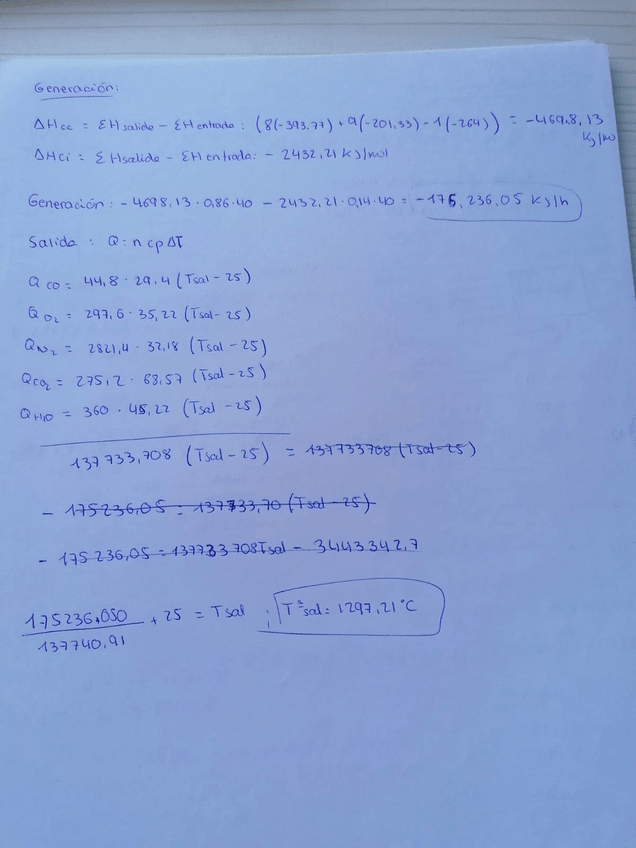 Generación:
ΔHcc = ΣHsalida - ΣHentrada: (8(-393,77) + 9(-201,33) - 1(-264)) = -4698,13 KJ/mol
ΔHci = ΣHsalida - ΣHentrada: - 2432,21 KJ/mol
Generación: - 4698,13 · 0,86 · 40 - 2432,21 · 0,14 · 40 = -175,236,05 KJ/h
Salida : Q = n cp ΔT
Q CO = 44,8 · 29,4 (Tsal - 25)
Q O2 = 297,6 · 35,22 (Tsal - 25)
Q N2 = 2821,4 · 32,18 (Tsal - 25)
Q CO2 = 275,2 · 68,57 (Tsal - 25)
Q H2O = 360 · 45,22 (Tsal - 25)
137 733,708 (Tsal - 25) = 137733708 (Tsal - 25)
- 175236,05 = 137733,70 (Tsal - 25)
- 175 236,05 = 137733708Tsal - 3443342,7
175236,050 / 137740,91 + 25 = Tsal ; Tª sal = 1297,21 °C